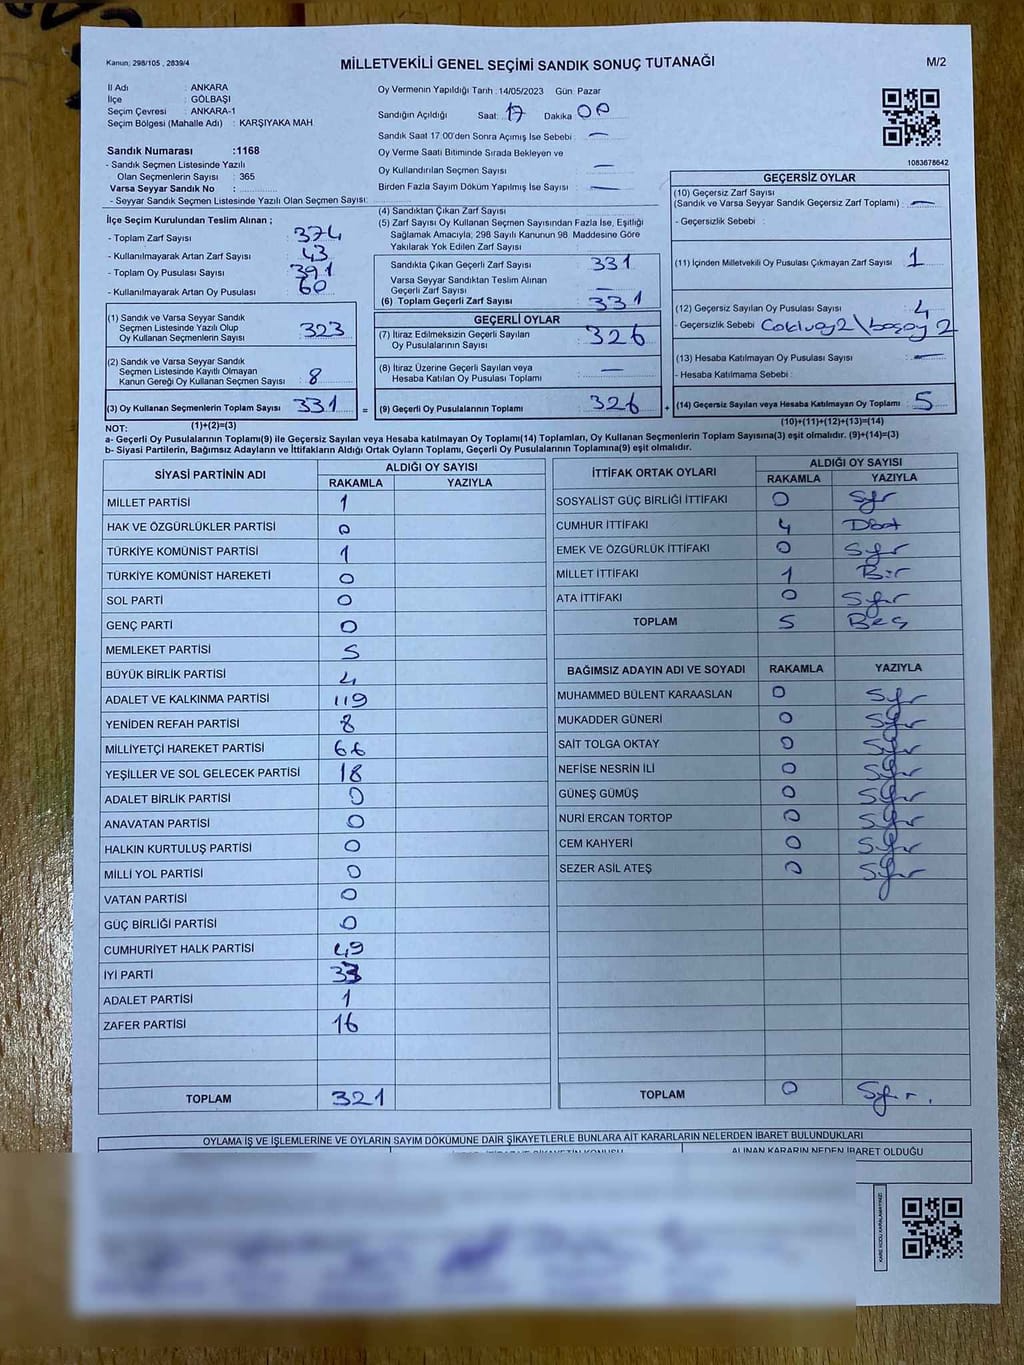 Kanun; 298/105 , 2839/4
MİLLETVEKİLİ GENEL SEÇİMİ SANDIK SONUÇ TUTANAĞI
M/2
İl Adı : ANKARA
İlçe : GÖLBAŞI
Seçim Çevresi : ANKARA-1
Seçim Bölgesi (Mahalle Adı) : KARŞIYAKA MAH
Sandık Numarası :1168
- Sandık Seçmen Listesinde Yazılı
Olan Seçmenlerin Sayısı : 365
Varsa Seyyar Sandık No :
- Seyyar Sandık Seçmen Listesinde Yazılı Olan Seçmen Sayısı:
Oy Vermenin Yapıldığı Tarih :14/05/2023 Gün: Pazar
Sandığın Açıldığı Saat: 17 Dakika 00
Sandık Saat 17:00'den Sonra Açımış İse Sebebi : —
Oy Verme Saati Bitiminde Sırada Bekleyen ve
Oy Kullandırılan Seçmen Sayısı : —
Birden Fazla Sayım Döküm Yapılmış İse Sayısı : —
1083678642
İlçe Seçim Kurulundan Teslim Alınan ;
- Toplam Zarf Sayısı : 374
- Kullanılmayarak Artan Zarf Sayısı : 43
- Toplam Oy Pusulası Sayısı : 391
- Kullanılmayarak Artan Oy Pusulası : 60
(1) Sandık ve Varsa Seyyar Sandık
Seçmen Listesinde Yazılı Olup
Oy Kullanan Seçmenlerin Sayısı : 323
(2) Sandık ve Varsa Seyyar Sandık
Seçmen Listesinde Kayıtlı Olmayan
Kanun Gereği Oy Kullanan Seçmen Sayısı : 8
(3) Oy Kullanan Seçmenlerin Toplam Sayısı : 331
(1)+(2)=(3)
(4) Sandıktan Çıkan Zarf Sayısı :
(5) Zarf Sayısı Oy Kullanan Seçmen Sayısından Fazla İse, Eşitliği
Sağlamak Amacıyla; 298 Sayılı Kanunun 98. Maddesine Göre
Yakılarak Yok Edilen Zarf Sayısı :
Sandıkta Çıkan Geçerli Zarf Sayısı : 331
Varsa Seyyar Sandıktan Teslim Alınan
Geçerli Zarf Sayısı : —
(6) Toplam Geçerli Zarf Sayısı : 331
GEÇERLİ OYLAR
(7) İtiraz Edilmeksizin Geçerli Sayılan
Oy Pusulalarının Sayısı : 326
(8) İtiraz Üzerine Geçerli Sayılan veya
Hesaba Katılan Oy Pusulası Toplamı : —
= (9) Geçerli Oy Pusulalarının Toplamı : 326
GEÇERSİZ OYLAR
(10) Geçersiz Zarf Sayısı
(Sandık ve Varsa Seyyar Sandık Geçersiz Zarf Toplamı) : —
- Geçersizlik Sebebi :
(11) İçinden Milletvekili Oy Pusulası Çıkmayan Zarf Sayısı : 1
(12) Geçersiz Sayılan Oy Pusulası Sayısı : 4
- Geçersizlik Sebebi : Çokluoy2\boşoy 2
(13) Hesaba Katılmayan Oy Pusulası Sayısı : —
- Hesaba Katılmama Sebebi :
+ (14) Geçersiz Sayılan veya Hesaba Katılmayan Oy Toplamı : 5
(10)+(11)+(12)+(13)=(14)
NOT:
a- Geçerli Oy Pusulalarının Toplamı(9) ile Geçersiz Sayılan veya Hesaba katılmayan Oy Toplamı(14) Toplamları, Oy Kullanan Seçmenlerin Toplam Sayısına(3) eşit olmalıdır. (9)+(14)=(3)
b- Siyasi Partilerin, Bağımsız Adayların ve İttifakların Aldığı Ortak Oyların Toplamı, Geçerli Oy Pusulalarının Toplamına(9) eşit olmalıdır.
SİYASİ PARTİNİN ADI ALDIĞI OY SAYISI
RAKAMLA YAZIYLA
MİLLET PARTİSİ 1
HAK VE ÖZGÜRLÜKLER PARTİSİ 0
TÜRKİYE KOMÜNİST PARTİSİ 1
TÜRKİYE KOMÜNİST HAREKETİ 0
SOL PARTİ 0
GENÇ PARTİ 0
MEMLEKET PARTİSİ 5
BÜYÜK BİRLİK PARTİSİ 4
ADALET VE KALKINMA PARTİSİ 119
YENİDEN REFAH PARTİSİ 8
MİLLİYETÇİ HAREKET PARTİSİ 66
YEŞİLLER VE SOL GELECEK PARTİSİ 18
ADALET BİRLİK PARTİSİ 0
ANAVATAN PARTİSİ 0
HALKIN KURTULUŞ PARTİSİ 0
MİLLİ YOL PARTİSİ 0
VATAN PARTİSİ 0
GÜÇ BİRLİĞİ PARTİSİ 0
CUMHURİYET HALK PARTİSİ 49
İYİ PARTİ 33
ADALET PARTİSİ 1
ZAFER PARTİSİ 16
TOPLAM 321
İTTİFAK ORTAK OYLARI ALDIĞI OY SAYISI
RAKAMLA YAZIYLA
SOSYALİST GÜÇ BİRLİĞİ İTTİFAKI 0 Sıfır
CUMHUR İTTİFAKI 4 Dört
EMEK VE ÖZGÜRLÜK İTTİFAKI 0 Sıfır
MİLLET İTTİFAKI 1 Bir
ATA İTTİFAKI 0 Sıfır
TOPLAM 5 Beş
BAĞIMSIZ ADAYIN ADI VE SOYADI RAKAMLA YAZIYLA
MUHAMMED BÜLENT KARAASLAN 0 Sıfır
MUKADDER GÜNERİ 0 Sıfır
SAİT TOLGA OKTAY 0 Sıfır
NEFİSE NESRİN İLİ 0 Sıfır
GÜNEŞ GÜMÜŞ 0 Sıfır
NURİ ERCAN TORTOP 0 Sıfır
CEM KAHYERİ 0 Sıfır
SEZER ASİL ATEŞ 0 Sıfır
TOPLAM 0 Sıfır.
OYLAMA İŞ VE İŞLEMLERİNE VE OYLARIN SAYIM DÖKÜMÜNE DAİR ŞİKAYETLERLE BUNLARA AİT KARARLARIN NELERDEN İBARET BULUNDUKLARI
ALINAN KARARIN NEDEN İBARET OLDUĞU
KARE KODU KARALAMAYINIZ!